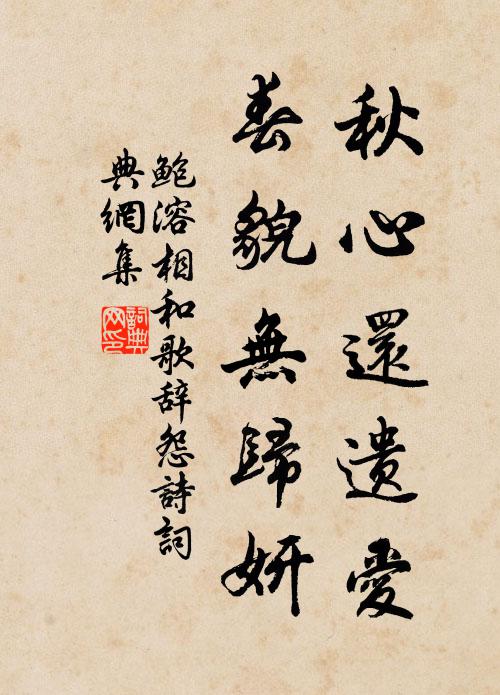 秋心還遺愛
春貌無歸妍
鲍溶相和歌辞怨詩詞
典網集
詞典
网印